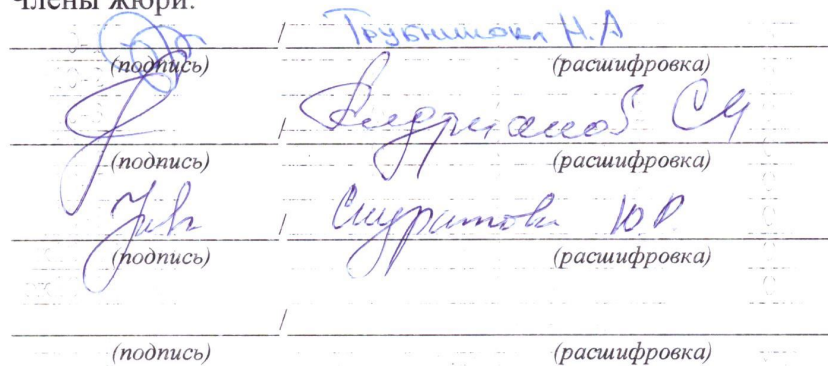 Члены жюри:
/ Трубникова Н.А
(подпись) (расшифровка)
/ Андрианов СМ
(подпись) (расшифровка)
/ Скуратова Ю Р
(подпись) (расшифровка)
/
(подпись) (расшифровка)